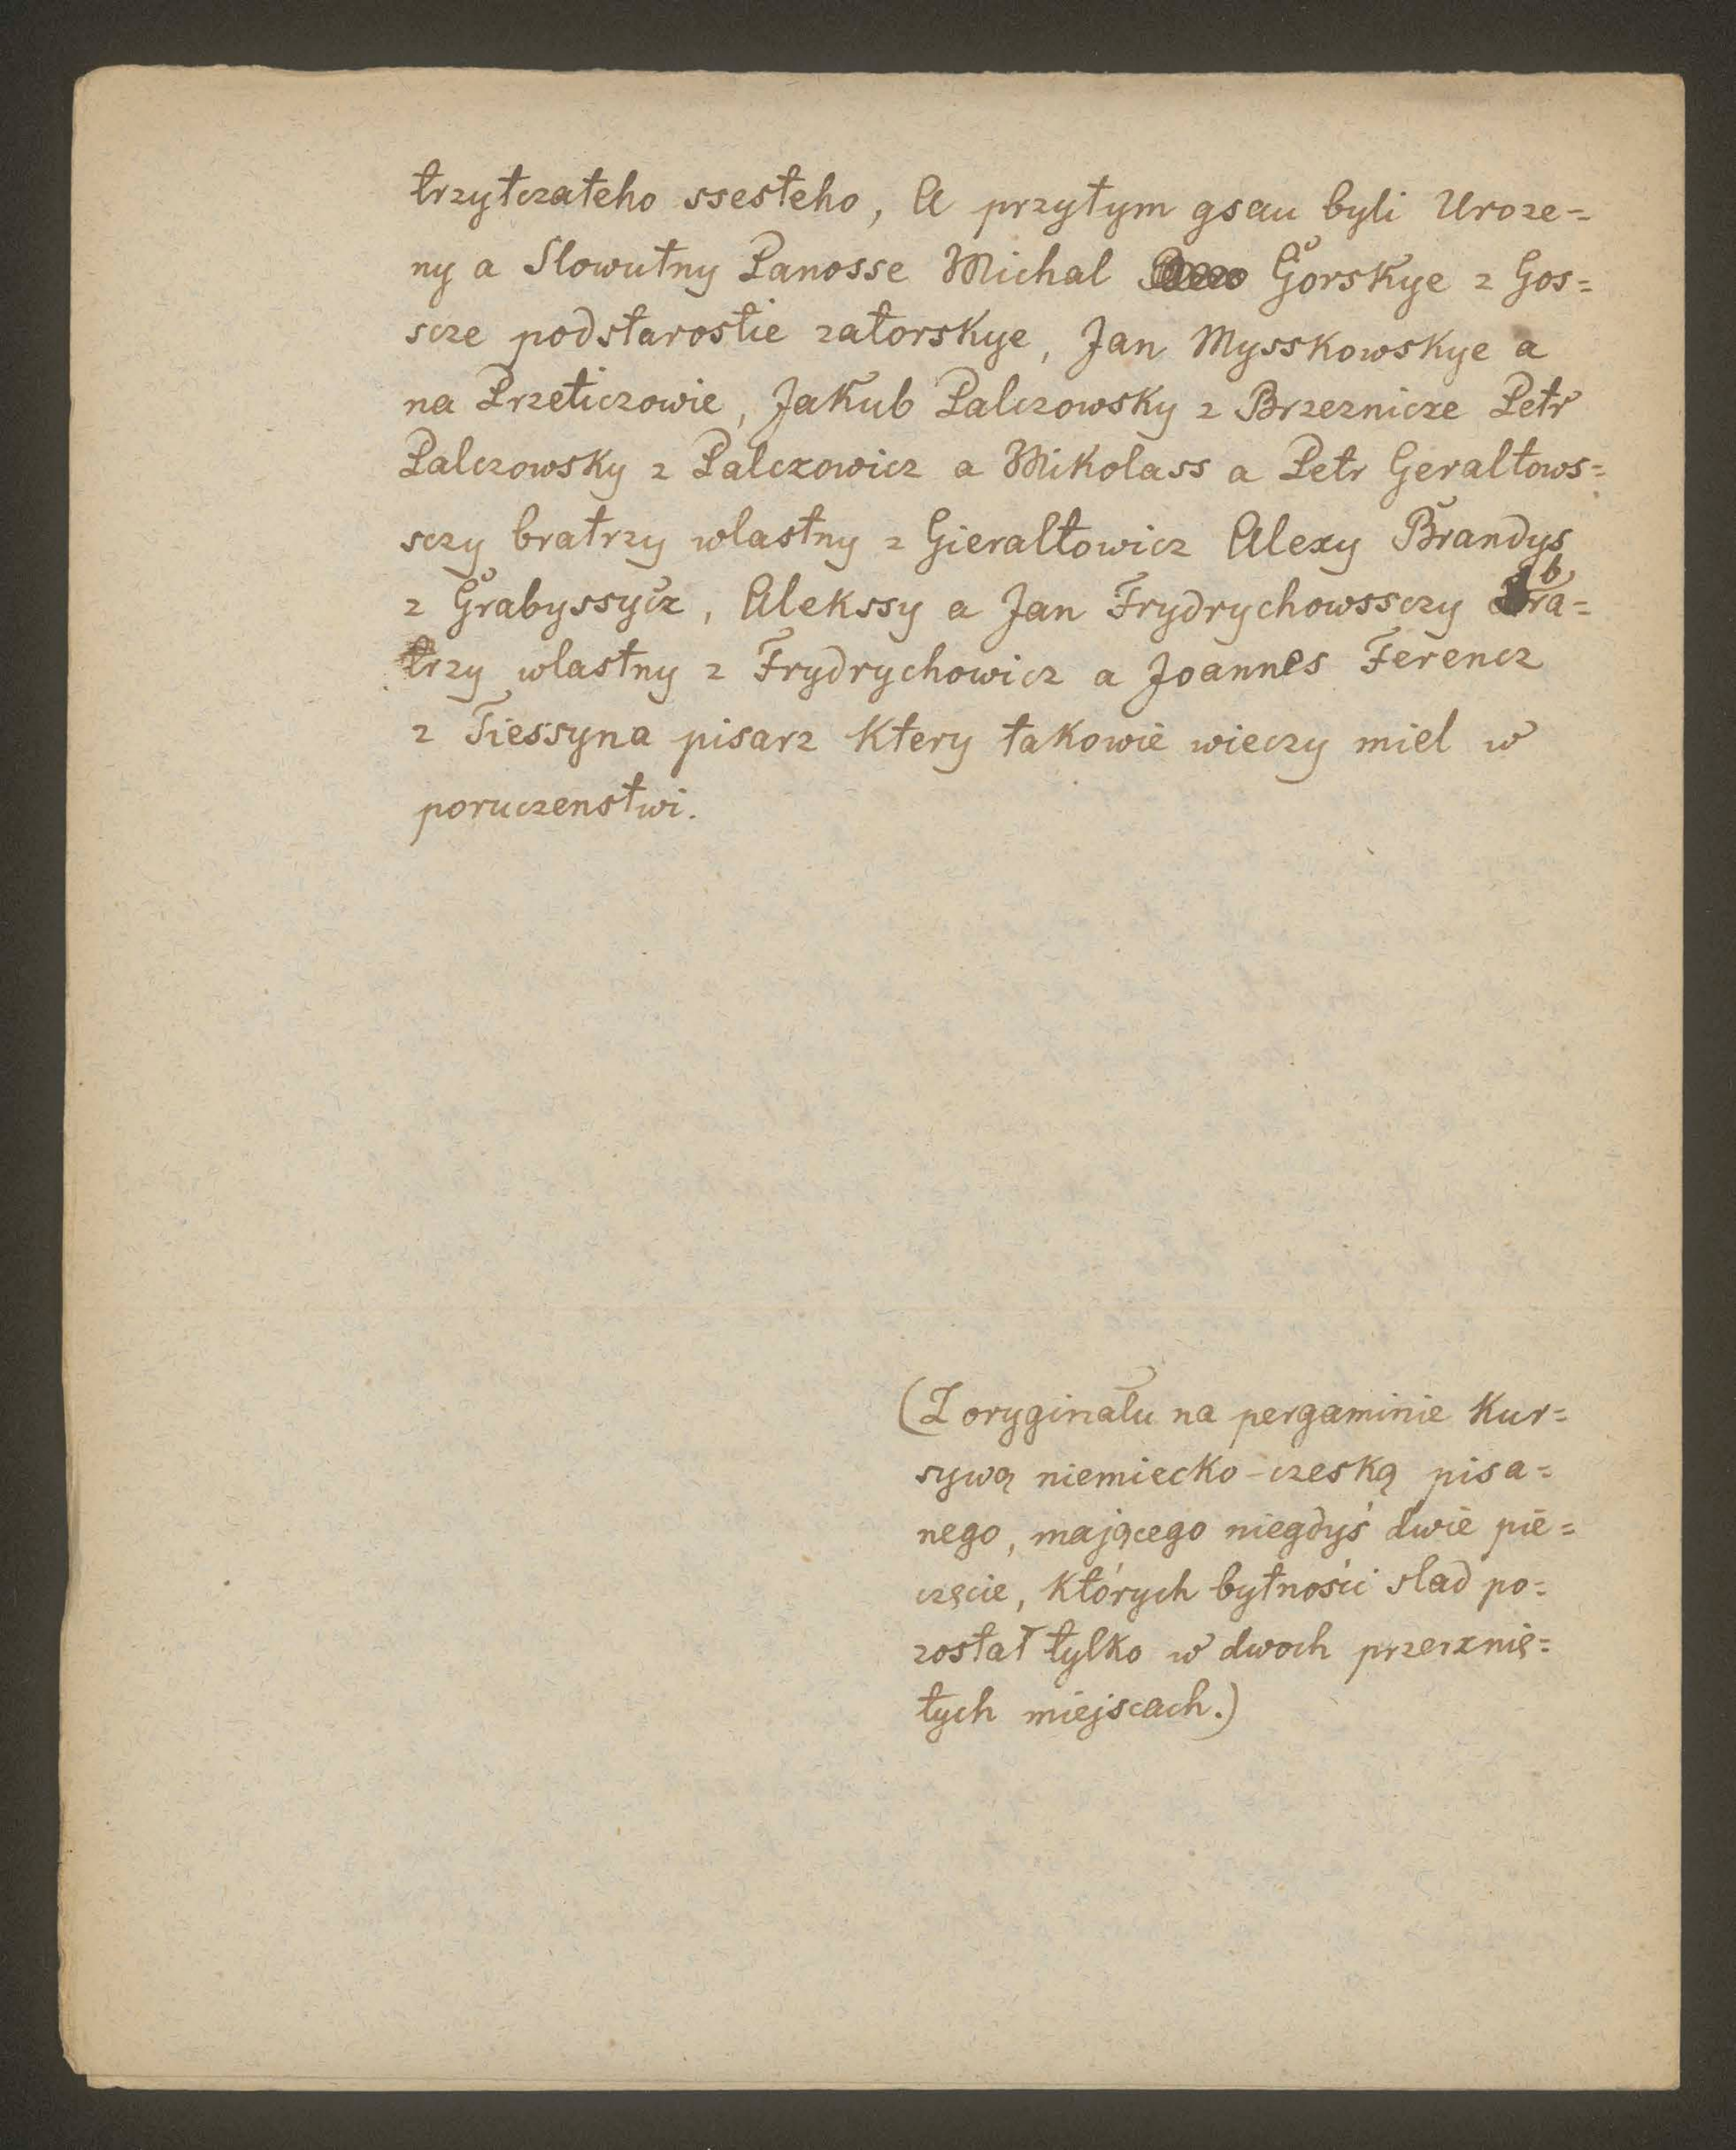 trzytczateho ssesteho, A przytym gsau byli Uroze=
ny a Slowutny Panosse Michal Gorskye z Gos=
scze podstarostie zatorskye, Jan Mysskowskye a
na Przeticzowie, Jakub Palczowsky z Brzeznicze Petr
Palczowsky z Palczowicz a Mikolass a Petr Geraltows=
sczy bratrzy wlastny z Gieraltowicz Alexy Brandys
z Grabyssycz, Alekssy a Jan Frydrychowssczy bra=
trzy wlastny z Frydrychowicz a Joannes Ferencz
z Tiessyna pisarz Ktery takowie wieczy miel w
poruczenstwi.
(Z oryginału na pergaminie Kur=
sywą niemiecko-czeską pisa=
nego, mającego niegdyś dwie pie=
częcie, których bytności slad po=
został tylko w dwoch przerznię=
tych miejscach.)